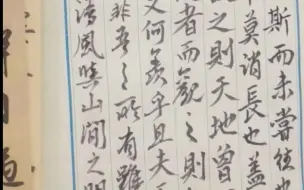 斯而未嘗往
莫消長也蓋
之則天地曾
者而觀之則
又何羨乎且夫
非吾之所有雖
清風與山間之明